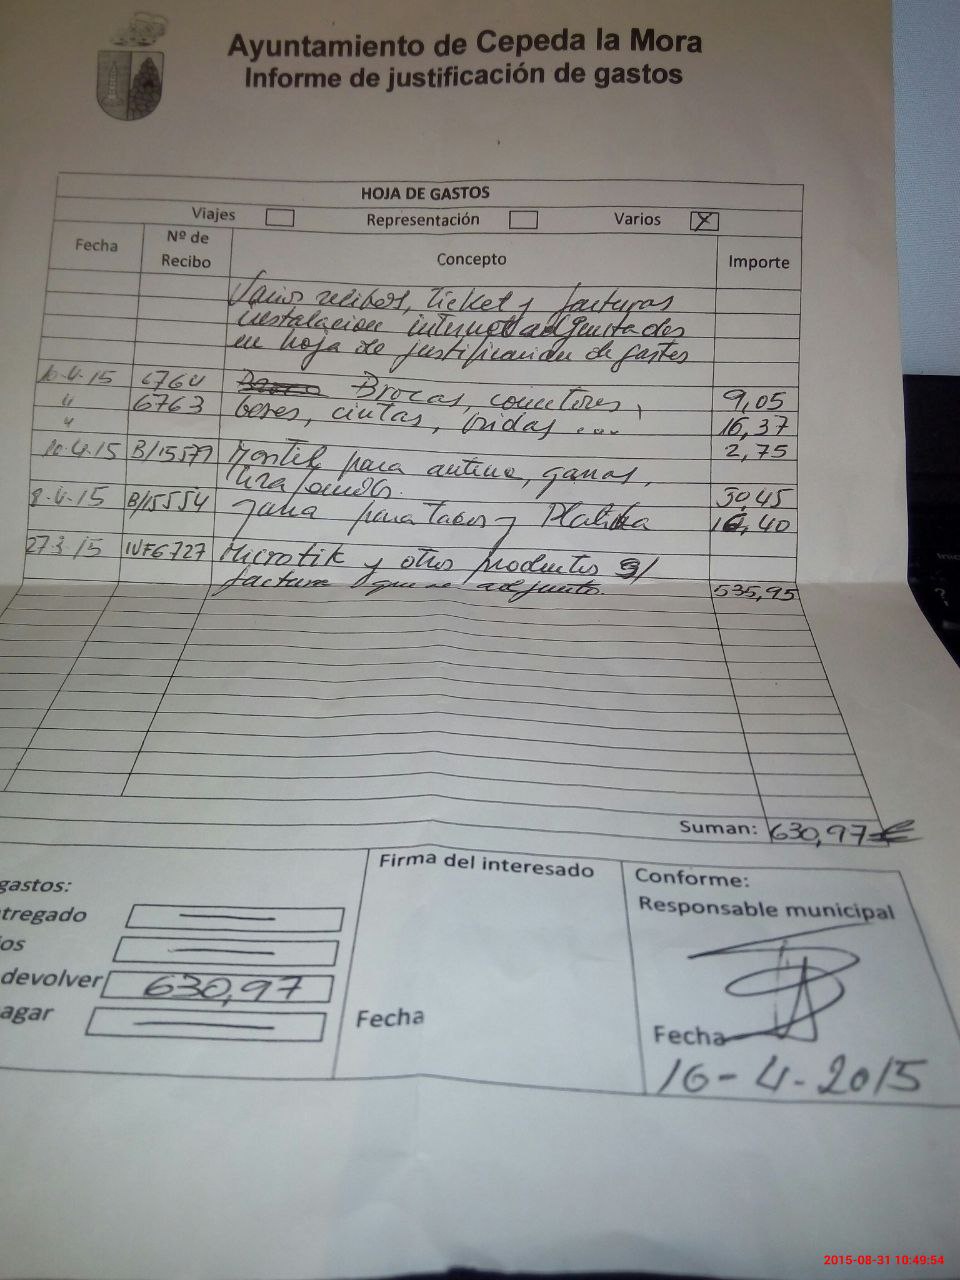 Ayuntamiento de Cepeda la Mora
Informe de justificación de gastos
HOJA DE GASTOS
Viajes Representación Varios X
Fecha Nº de Recibo Concepto Importe
Varios recibos, ticket y facturas
instalacion internet adjuntados
en hoja de justificacion de gastes
10.4.15 6764 Brocas, conectores, 9,05
" 6763 bases, cintas, bridas ... 16,37
" 2,75
10.4.15 B/15579 Mastil para antena, garras,
tirafondos. 30,45
8.4.15 B/15554 garra para tacos y Platina 16,40
27.3.15 INF6727 Microtik y otros productos s/
factura que se adjunta. 535,95
Suman: 630,97 €
gastos:
tregado
ios
devolver 630,97
agar
Firma del interesado
Fecha
Conforme:
Responsable municipal
Fecha
16-4-2015
2015-08-31 10:49:54